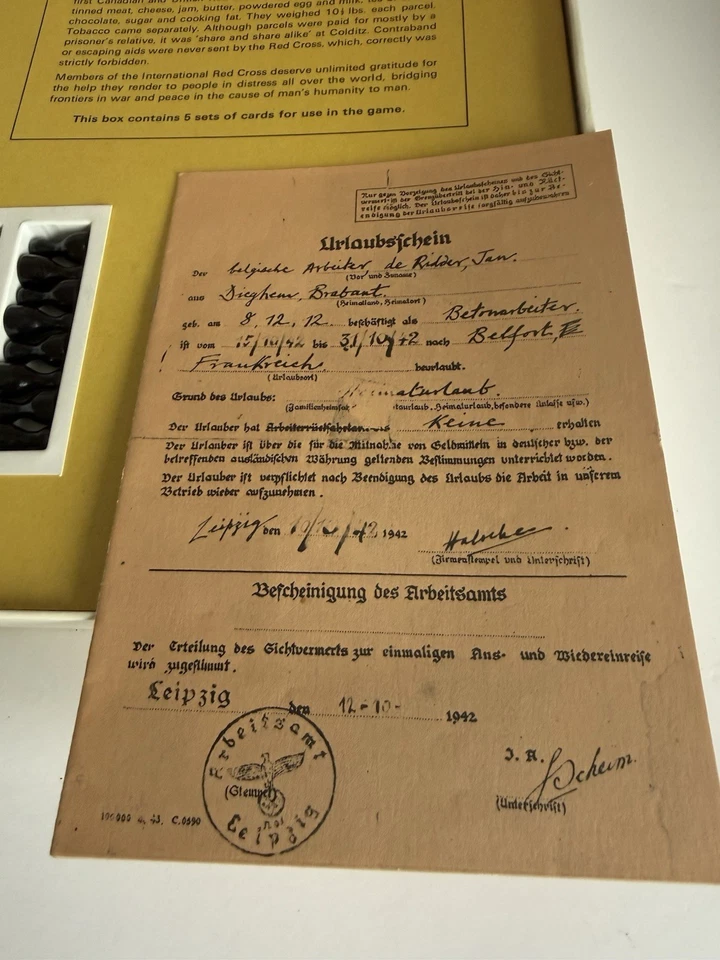 first Canadian and British
tinned meat, cheese, jam, butter, powdered egg and milk, tea or
chocolate, sugar and cooking fat. They weighed 10½ lbs. each parcel.
Tobacco came separately. Although parcels were paid for mostly by a
prisoner's relative, it was 'share and share alike' at Colditz. Contraband
or escaping aids were never sent by the Red Cross, which, correctly was
strictly forbidden.
Members of the International Red Cross deserve unlimited gratitude for
the help they render to people in distress all over the world, bridging
frontiers in war and peace in the cause of man's humanity to man.
This box contains 5 sets of cards for use in the game.
Nur gegen Vorzeigung des Urlaubscheines und des Sicht-
vermerks in der Grenzübertritt bei der Hin- und Rück-
reise möglich. Der Urlaubschein ist daher bis zur Be-
endigung der Urlaubsreise sorgfältig aufzubewahren
Urlaubsschein
Der belgische Arbeiter de Ridder, Jan.
(Vor und Zuname)
aus Dieghem, Brabant.
(Heimatland, Heimatort)
geb. am 8.12.12. beschäftigt als Betonarbeiter.
ist vom 15/10/42 bis 31/10/42 nach Belfort,
Frankreich beurlaubt.
(Urlaubsort)
Grund des Urlaubs: Heimaturlaub.
(Familienheimfah taurlaub, Heimaturlaub, besondere Anlässe usw.)
Der Urlauber hat Keine erhalten
Der Urlauber ist über die für die Mitnahme von Geldmitteln in deutscher bzw. der
betreffenden ausländischen Währung geltenden Bestimmungen unterrichtet worden.
Der Urlauber ist verpflichtet nach Beendigung des Urlaubs die Arbeit in unserem
Betrieb wieder aufzunehmen.
Leipzig den 1942
(Firmenstempel und Unterschrift)
Bescheinigung des Arbeitsamts
Der Erteilung des Sichtvermerks zur einmaligen Aus- und Wiedereinreise
wird zugestimmt.
Leipzig den 12-10- 1942
Arbeitsamt
(Stempel)
Leipzig
J. A.
(Unterschrift)